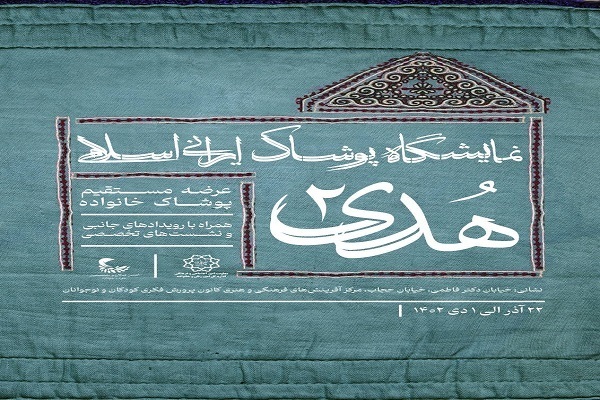 نمایشگاه پوشاک ایرانی اسلامی
هُدی ۲
عرضه مستقیم
پوشاک خانواده
همراه با رویدادهای جانبی
و نشست‌های تخصصی
نشانی: خیابان دکتر فاطمی، خیابان حجاب، مرکز آفرینش‌های فرهنگی و هنری کانون پرورش فکری کودکان و نوجوانان
۲۲ آذر الی ۱ دی ۱۴۰۲